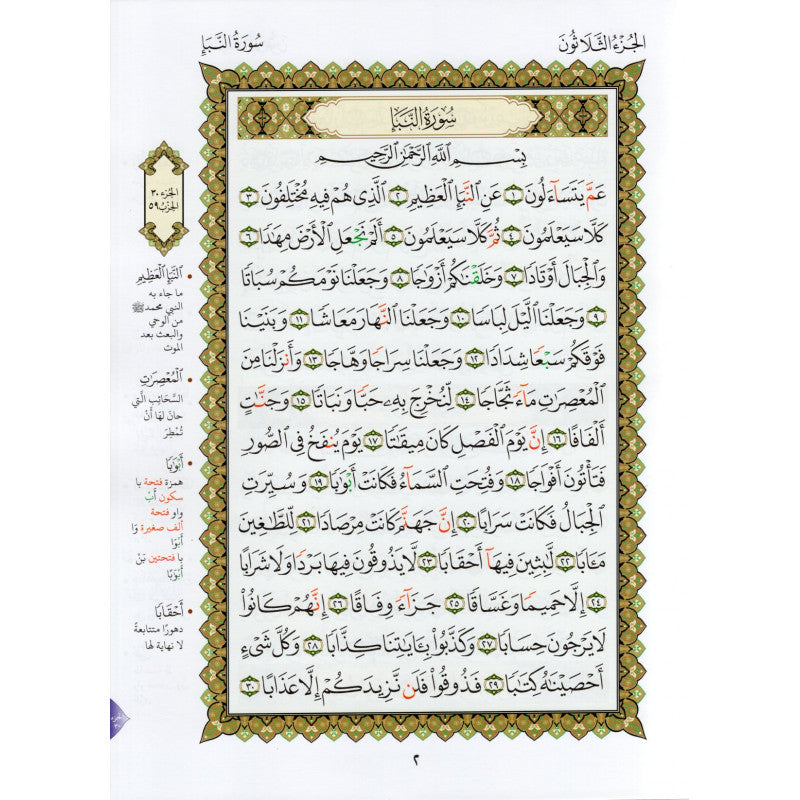 الجُزْءُ الثَّلَاثُونَ
سُورَةُ النَّبَإِ
سُورَةُ النَّبَإِ
بِسْمِ ٱللَّهِ ٱلرَّحْمَٰنِ ٱلرَّحِيمِ
عَمَّ يَتَسَآءَلُونَ ١ عَنِ ٱلنَّبَإِ ٱلْعَظِيمِ ٢ ٱلَّذِى هُمْ فِيهِ مُخْتَلِفُونَ ٣
كَلَّا سَيَعْلَمُونَ ٤ ثُمَّ كَلَّا سَيَعْلَمُونَ ٥ أَلَمْ نَجْعَلِ ٱلْأَرْضَ مِهَٰدًا ٦
وَٱلْجِبَالَ أَوْتَادًا ٧ وَخَلَقْنَٰكُمْ أَزْوَٰجًا ٨ وَجَعَلْنَا نَوْمَكُمْ سُبَاتًا
٩ وَجَعَلْنَا ٱلَّيْلَ لِبَاسًا ١٠ وَجَعَلْنَا ٱلنَّهَارَ مَعَاشًا ١١ وَبَنَيْنَا
فَوْقَكُمْ سَبْعًا شِدَادًا ١٢ وَجَعَلْنَا سِرَاجًا وَهَّاجًا ١٣ وَأَنزَلْنَا مِنَ
ٱلْمُعْصِرَٰتِ مَآءً ثَجَّاجًا ١٤ لِّنُخْرِجَ بِهِۦ حَبًّا وَنَبَاتًا ١٥ وَجَنَّٰتٍ
أَلْفَافًا ١٦ إِنَّ يَوْمَ ٱلْفَصْلِ كَانَ مِيقَٰتًا ١٧ يَوْمَ يُنفَخُ فِى ٱلصُّورِ
فَتَأْتُونَ أَفْوَاجًا ١٨ وَفُتِحَتِ ٱلسَّمَآءُ فَكَانَتْ أَبْوَٰبًا ١٩ وَسُيِّرَتِ
ٱلْجِبَالُ فَكَانَتْ سَرَابًا ٢٠ إِنَّ جَهَنَّمَ كَانَتْ مِرْصَادًا ٢١ لِّلطَّٰغِينَ
مَـَٔابًا ٢٢ لَّٰبِثِينَ فِيهَآ أَحْقَابًا ٢٣ لَّا يَذُوقُونَ فِيهَا بَرْدًا وَلَا شَرَابًا
٢٤ إِلَّا حَمِيمًا وَغَسَّاقًا ٢٥ جَزَآءً وِفَاقًا ٢٦ إِنَّهُمْ كَانُوا۟
لَا يَرْجُونَ حِسَابًا ٢٧ وَكَذَّبُوا۟ بِـَٔايَٰتِنَا كِذَّابًا ٢٨ وَكُلَّ شَىْءٍ
أَحْصَيْنَٰهُ كِتَٰبًا ٢٩ فَذُوقُوا۟ فَلَن نَّزِيدَكُمْ إِلَّا عَذَابًا ٣٠
الجزء ٣٠
الحزب ٥٩
ٱلنَّبَإِ ٱلْعَظِيمِ
ما جاء به
النبي محمد ﷺ
من الوحي
والبعث بعد
الموت
ٱلْمُعْصِرَٰتِ
السَّحَائِبِ الَّتِي
حَانَ لَهَا أَنْ
تُمْطِرَ
أَبْوَٰبًا
همزة فتحة با
سكون أَبْ
واو فتحة
ألف صغيرة وَا
أَبْوَا
با فتحتين بَنْ
أَبْوَٰبًا
أَحْقَابًا
دهورًا متتابعةً
لا نهاية لها
الجزء
٣٠
٢